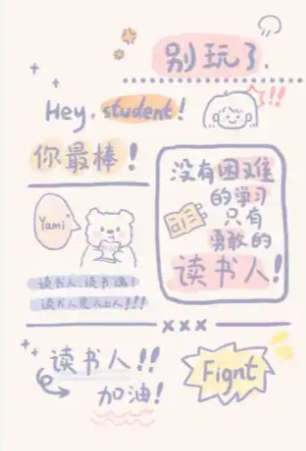 别玩了.
Hey, student!
你最棒!
没有困难
的学习
只有
勇敢的
读书人!
Yami
读书人,读书魂!
读书人是人上人!!!
读书人!!
加油!
Fignt